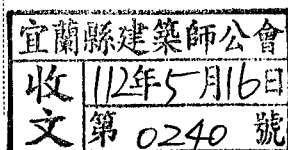 宜蘭縣建築師公會
收文
112年5月16日
第 0240 號